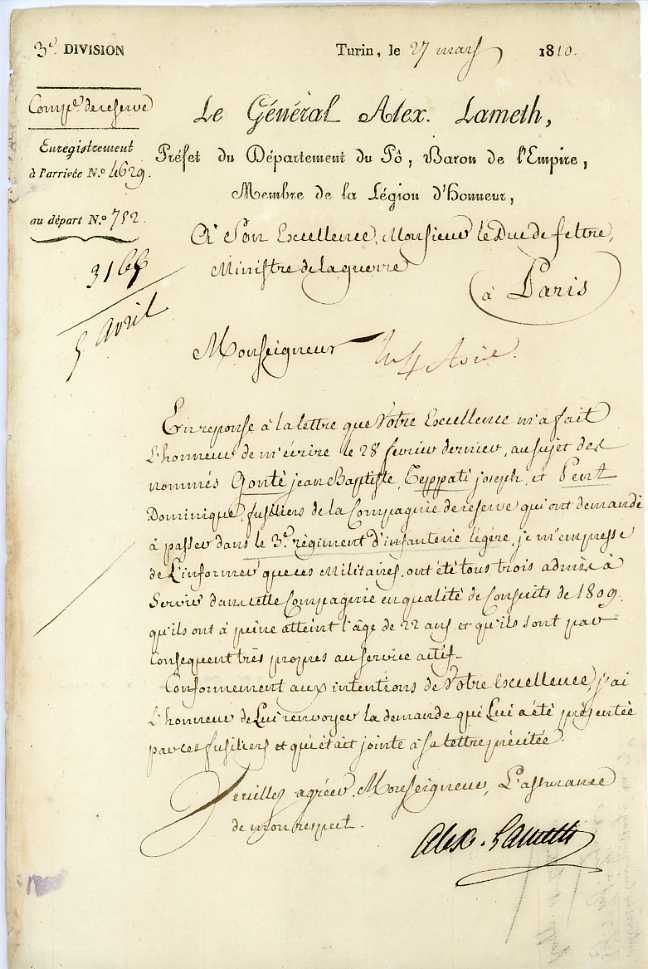 3e. DIVISION
Turin, le 27 mars 1810.
Compie. de reserve
Enregistrement
à l'arrivée N.o 4629.
au départ N.o 752.
5 avril
Le Général Alex. Lameth,
Préfet du Département du Pô, Baron de l'Empire,
Membre de la Légion d'Honneur,
A Son Excellence, Monsieur le Duc de feltre,
Ministre de la guerre
à Paris
Monseigneur
En reponse à la lettre que Votre Excellence m'a fait
l'honneur de m'écrire le 28 fevrier dernier, au sujet des
nommés Gonté jean Baptiste, Teppati joseph, et
Dominique, fusiliers de la Compagnie de reserve qui ont demandé
à passer dans le 3e. régiment d'infanterie légère, je m'empresse
de l'informer que ces Militaires, ont été tous trois admis à
Servir dans cette Compagnie en qualité de Conscrits de 1809.
qu'ils ont à peine atteint l'âge de 22 ans et qu'ils sont par
Consequent très propres au service actif.
Conformement aux intentions de Votre Excellence, j'ai
l'honneur de Lui renvoyer la demande qui Lui a été présentée
par ces fusiliers et qui était jointe à sa lettre précitée.
Veuillez agréer, Monseigneur, L'assurance
de mon respect.
Alex. Lameth